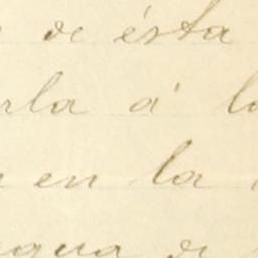 de ésta
rla á l
en la
gua de